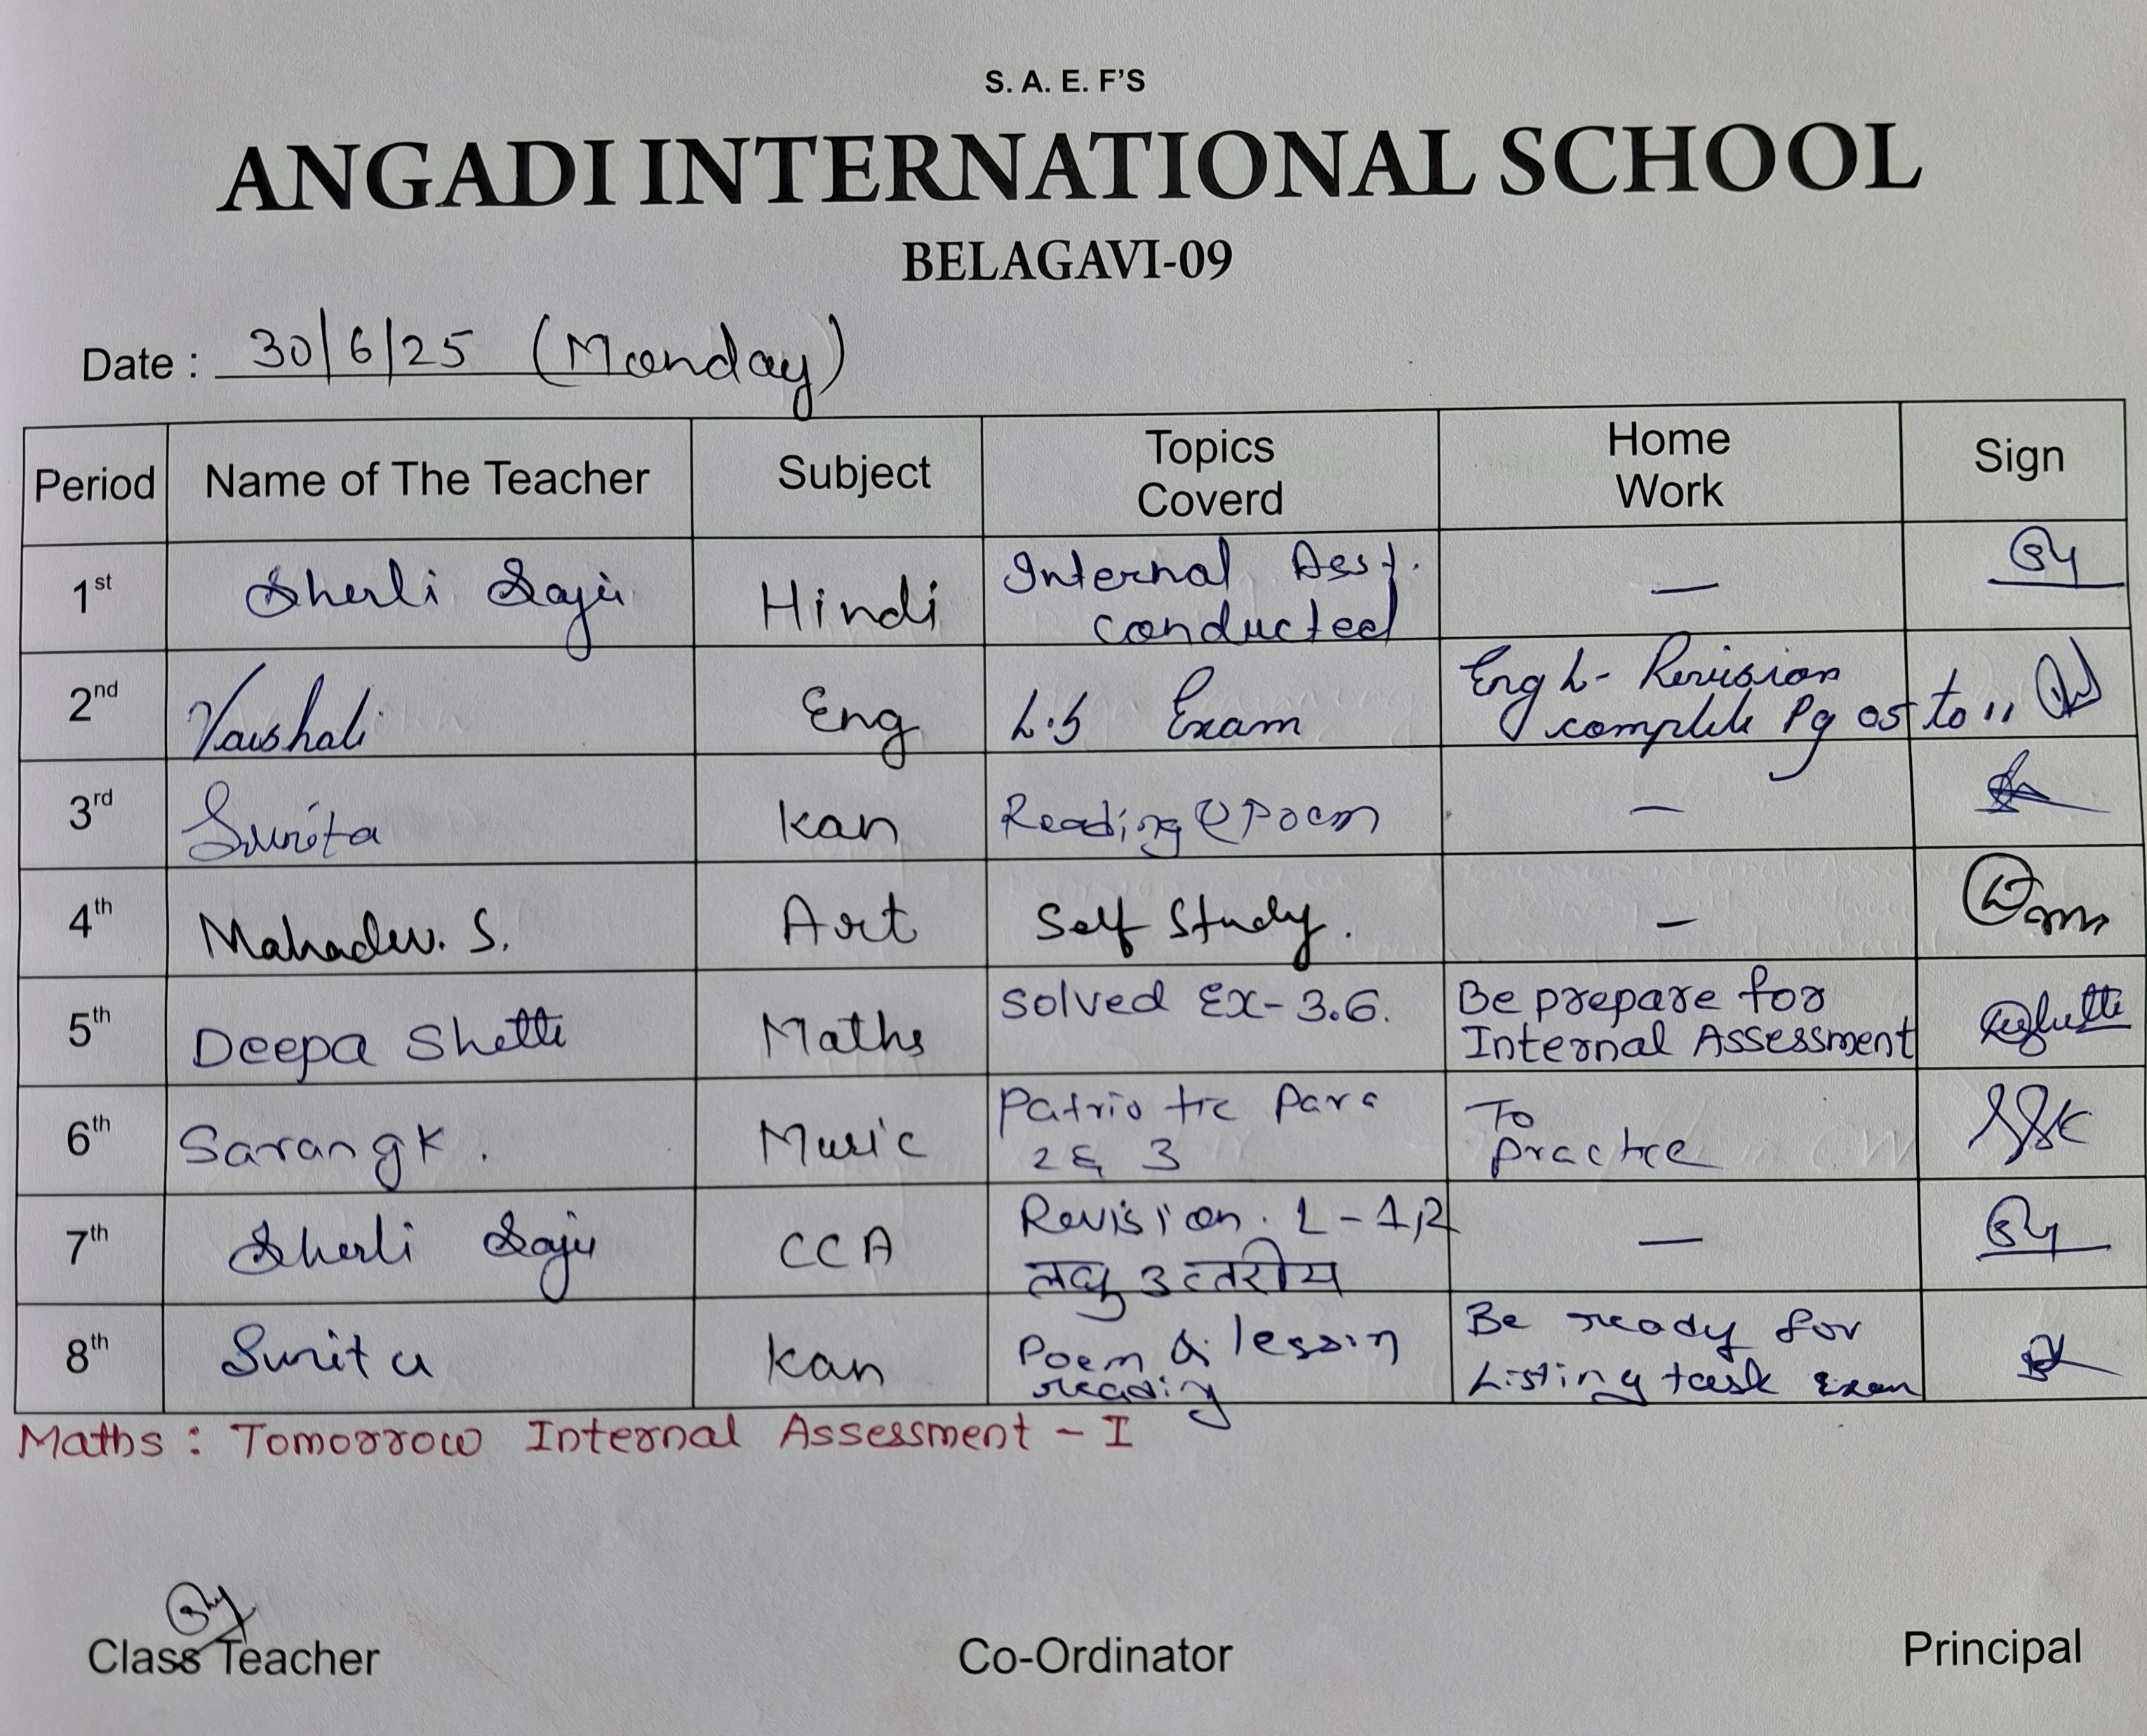 S. A. E. F'S
ANGADI INTERNATIONAL SCHOOL
BELAGAVI-09
Date : 30/6/25 (Monday)
Period Name of The Teacher Subject Topics Coverd Home Work Sign
1st Sherli Saju Hindi Internal Asst. conducted —
2nd Vaishali Eng L.S Exam Eng L- Revision complete Pg 05 to 11
3rd Sunita Kan Reading Poem —
4th Mahadev. S. Art Self Study. —
5th Deepa Shetti Maths Solved Ex-3.6. Be prepare for Internal Assessment
6th Sarang K. Music Patriotic Para 2 & 3 To Practice
7th Sherli Saju CCA Revision. L-1,2 लघु उत्तरीय —
8th Sunita Kan Poem & lesson reading Be ready for Listing task Exam
Maths : Tomorrow Internal Assessment - I
Class Teacher Co-Ordinator Principal